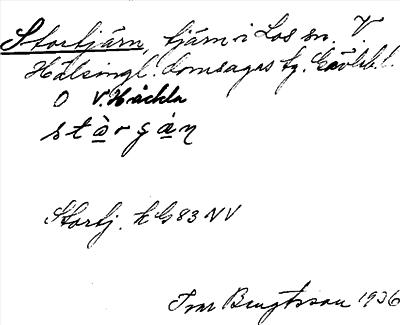 Stortjärn, tjärn i Los sn. V.
Hälsingl. domsagas tg. Gävleb. l.
O V. Håckla
stòrgàn
Stortj. k G 83 NV
Ivar Bengtsson 1936